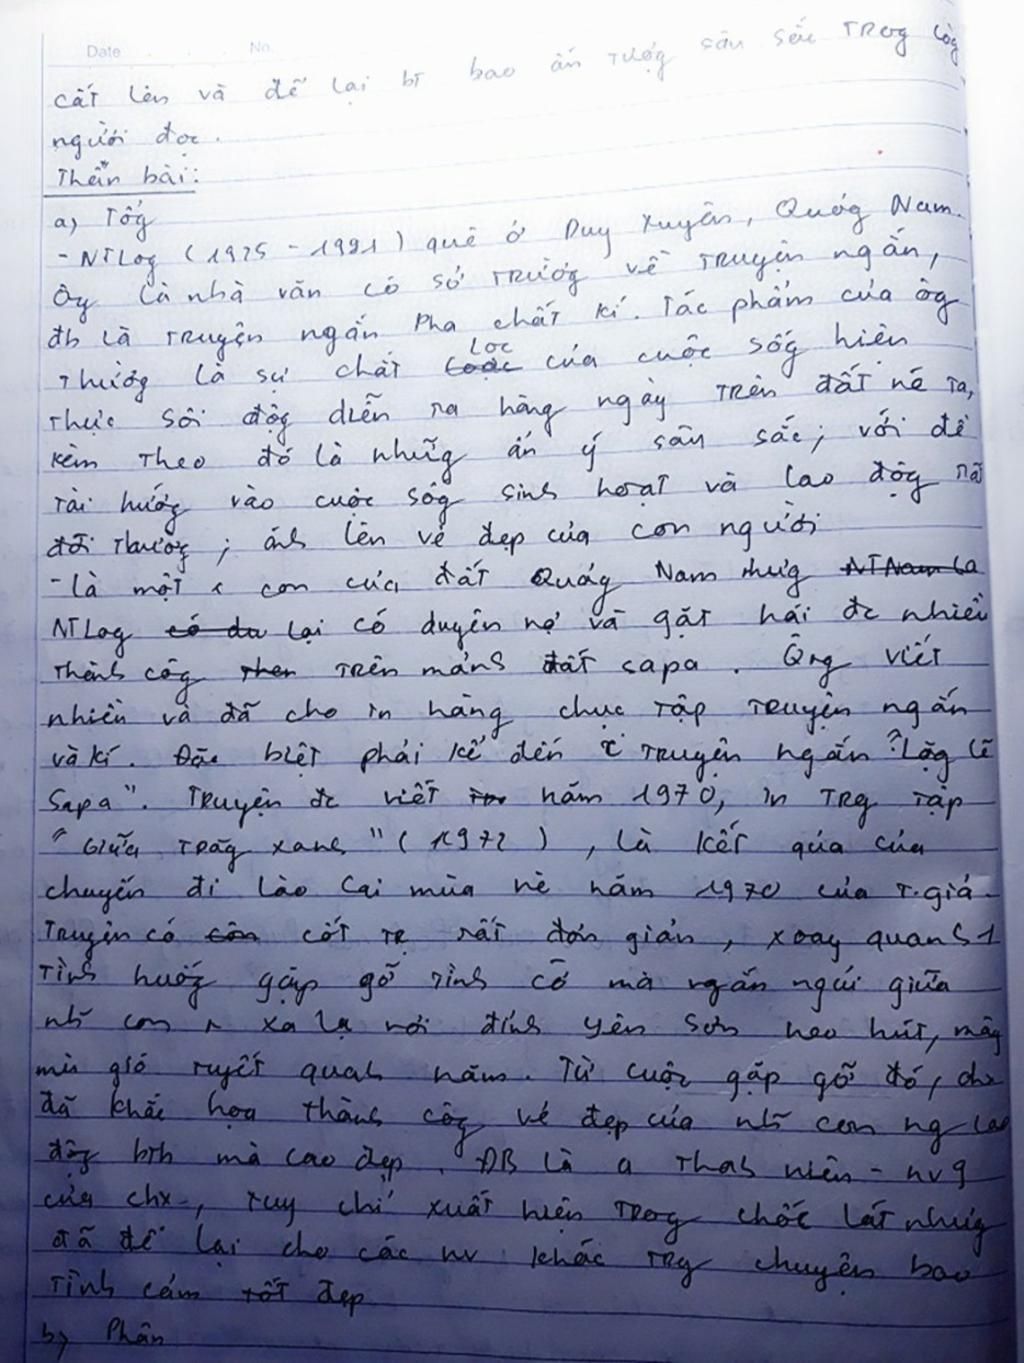 Date No.
cất lên và để lại bt bao ấn tượg sâu sắc Trog lòg
người đọc.
Thân bài:
a) Tổg
- NTLog (1925 - 1991) quê ở Duy Xuyên, Quảg Nam.
Ôg là nhà văn có sở trườg về truyện ngắn,
đb là truyện ngắn pha chất kí. Tác phẩm của ôg
thườg là sự chắt lọc của cuộc sốg hiện
thực sôi độg diễn ra hàng ngày trên đất nc ta,
kèm theo đó là nhữg ẩn ý sâu sắc; với đề
tài hướg vào cuộc sốg sinh hoạt và lao độg rất
đời thườg; ánh lên vẻ đẹp của con người
- Là một con của đất Quảg Nam nhưg NTNam la
NTLog có du lại có duyên nợ và gặt hái đc nhiều
thành côg then trên mảnh đất sapa. Ông viết
nhiều và đã cho in hàng chục tập truyện ngắn
và kí. Đặc biệt phải kể đến truyện ngắn "Lặg lẽ
Sapa". Truyện đc viết năm 1970, in Trg tập
"Giữa trăg xanh" (1972), là kết quả của
chuyến đi Lào Cai mùa hè năm 1970 của t.giả.
Truyện có côn cốt tr rất đơn giản, xoay quanh 1
tình huốg gặp gỡ tình cờ mà ngắn ngủi giữa
nh~ con xa lạ nơi đỉnh yên Sơn heo hút, mây
mù gió tuyết quanh năm. Từ cuộc gặp gỡ đó, chx
đã khắc họa thành côg vẻ đẹp của nh~ con ng lao
độg bth mà cao đẹp. ĐB là a thah niên - nv9
của chx, tuy chỉ xuất hiện Trog chốc lát nhưg
đã để lại cho các nv khác trg chuyện bao
tình cảm tốt đẹp
b) Phân